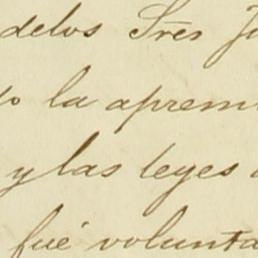 delos Sres J
o la apremi
y las leyes
fué volunta